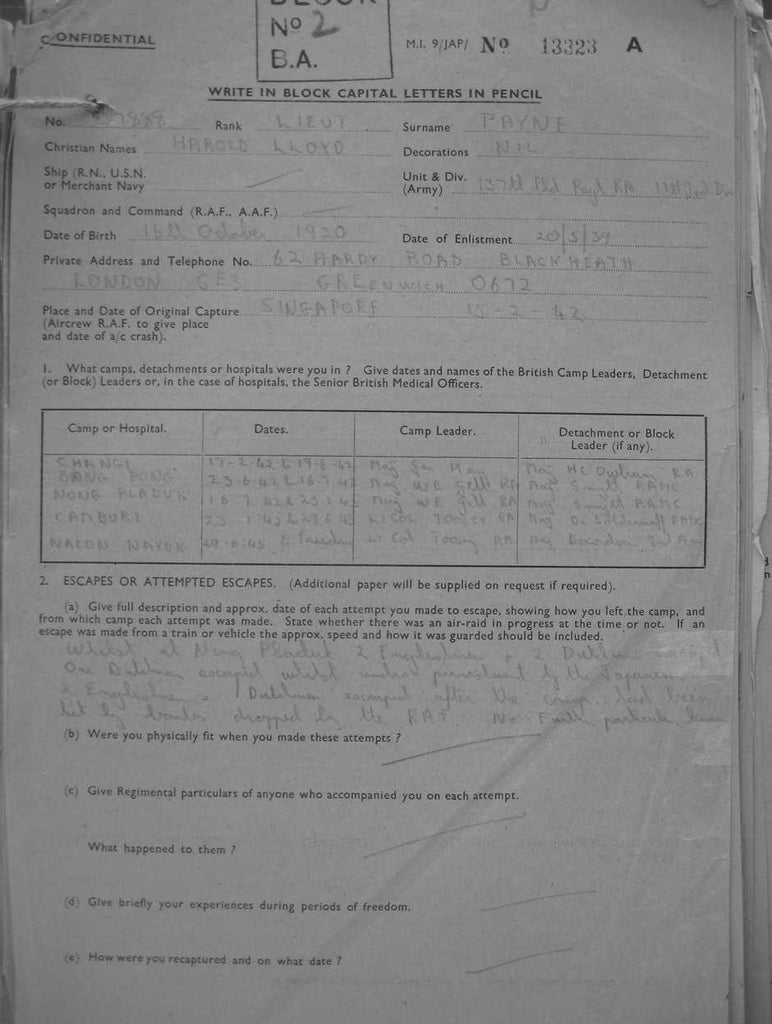 BLOCK
No 2
B.A.
CONFIDENTIAL
M.I. 9/JAP/ No 13323 A
WRITE IN BLOCK CAPITAL LETTERS IN PENCIL
No. Rank LIEUT Surname PAYNE
Christian Names HAROLD LLOYD Decorations NIL
Ship (R.N., U.S.N. or Merchant Navy Unit & Div. (Army) 137th Fld Regt RA 11th Ind Div
Squadron and Command (R.A.F., A.A.F.)
Date of Birth 16th October 1920 Date of Enlistment 20/5/39
Private Address and Telephone No. 62 HARDY ROAD BLACKHEATH
LONDON SE3 GREENWICH 0672
Place and Date of Original Capture SINGAPORE 15-2-42
(Aircrew R.A.F. to give place
and date of a/c crash).
1. What camps, detachments or hospitals were you in ? Give dates and names of the British Camp Leaders, Detachment
(or Block) Leaders or, in the case of hospitals, the Senior British Medical Officers.
Camp or Hospital. Dates. Camp Leader. Detachment or Block Leader (if any).
CHANGI 17-2-42 to 19-6-42 Maj RA
BANG PONG 23-6-42 to 16-7-42 Maj WE Gill RA Maj Smyth RAMC
NONG PLADUK 16-7-42 to 23-1-45 Maj WE Gill RA Maj Smyth RAMC
CANBURI 23-1-45 to 29-6-45 Lt Col Toosey RA Maj
NACON NAYOK 29-6-45 to Lt Col Toosey RA Maj
2. ESCAPES OR ATTEMPTED ESCAPES. (Additional paper will be supplied on request if required).
(a) Give full description and approx. date of each attempt you made to escape, showing how you left the camp, and
from which camp each attempt was made. State whether there was an air-raid in progress at the time or not. If an
escape was made from a train or vehicle the approx. speed and how it was guarded should be included.
Whilst at Nong Pladuk 2 Englishmen + 2 Dutchmen escaped
One Dutchman escaped whilst under punishment by the Japanese
2 Englishmen & 1 Dutchman escaped after the camp had been
hit by bombs dropped by the RAF. No further particulars known
(b) Were you physically fit when you made these attempts ?
(c) Give Regimental particulars of anyone who accompanied you on each attempt.
What happened to them ?
(d) Give briefly your experiences during periods of freedom.
(e) How were you recaptured and on what date ?